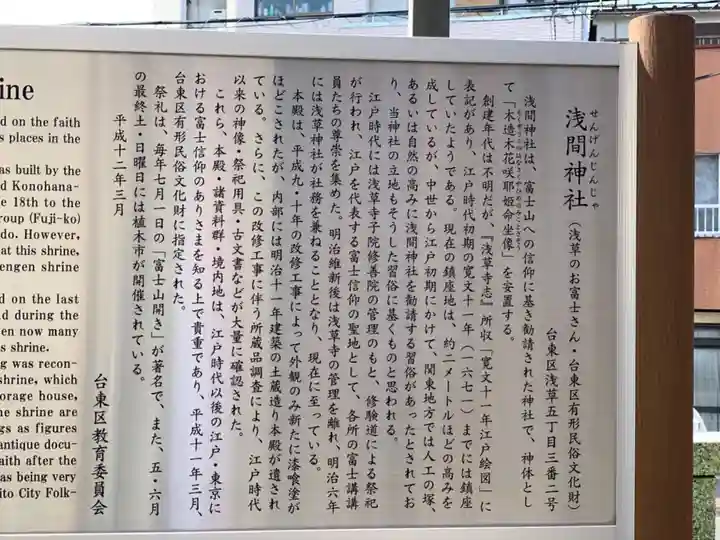 浅間神社
せんげんじんじゃ
（浅草のお富士さん・台東区有形民俗文化財）
台東区浅草五丁目三番二号
浅間神社は、富士山への信仰に基き勧請された神社で、神体とし
て「木造木花咲耶姫命坐像」を安置する。
創建年代は不明だが、『浅草寺志』所収「寛文十一年江戸絵図」に
表記があり、江戸時代初期の寛文十一年（一六七一）までには鎮座
していたようである。現在の鎮座地は、約二メートルほどの高みを
成しているが、中世から江戸初期にかけて、関東地方では人工の塚、
あるいは自然の高みに浅間神社を勧請する習俗があったとされてお
り、当神社の立地もそうした習俗に基くものと思われる。
江戸時代には浅草寺子院修善院の管理のもと、修験道による祭祀
が行われ、江戸を代表する富士信仰の聖地として、各所の富士講講
員たちの尊崇を集めた。明治維新後は浅草寺の管理を離れ、明治六年
には浅草神社が社務を兼ねることとなり、現在に至っている。
本殿は、平成九・十年の改修工事によって外観のみ新たに漆喰塗が
ほどこされたが、内部には明治十一年建築の土蔵造り本殿が遺され
ている。さらに、この改修工事に伴う所蔵品調査により、江戸時代
以来の神像・祭祀用具・古文書などが大量に確認された。
これら、本殿・諸資料群・境内地は、江戸時代以後の江戸・東京に
おける富士信仰のありさまを知る上で貴重であり、平成十一年三月、
台東区有形民俗文化財に指定された。
祭礼は、毎年七月一日の「富士山開き」が著名で、また、五・六月
の最終土・日曜日には植木市が開催されている。
平成十二年三月
台東区教育委員会
ine
d on the faith
s places in the
as built by the
d Konohana-
e 18th to the
roup (Fuji-ko)
do. However,
at this shrine,
engen shrine
d on the last
ld during the
en now many
s shrine.
g was recon-
shrine, which
orage house,
ne shrine are
gs as figures
antique docu-
aith after the
as being very
ito City Folk-